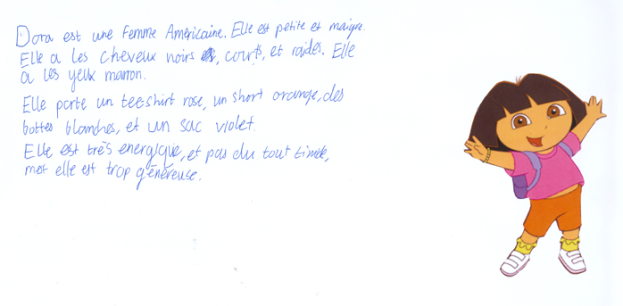 Dora est une femme Américaine. Elle est petite et maigre.
Elle a les cheveux noirs, courts, et raides. Elle
a les yeux marron.
Elle porte un tee-shirt rose, un short orange, des
bottes blanches, et un sac violet.
Elle est très energique, et pas du tout timide,
met elle est trop généreuse.